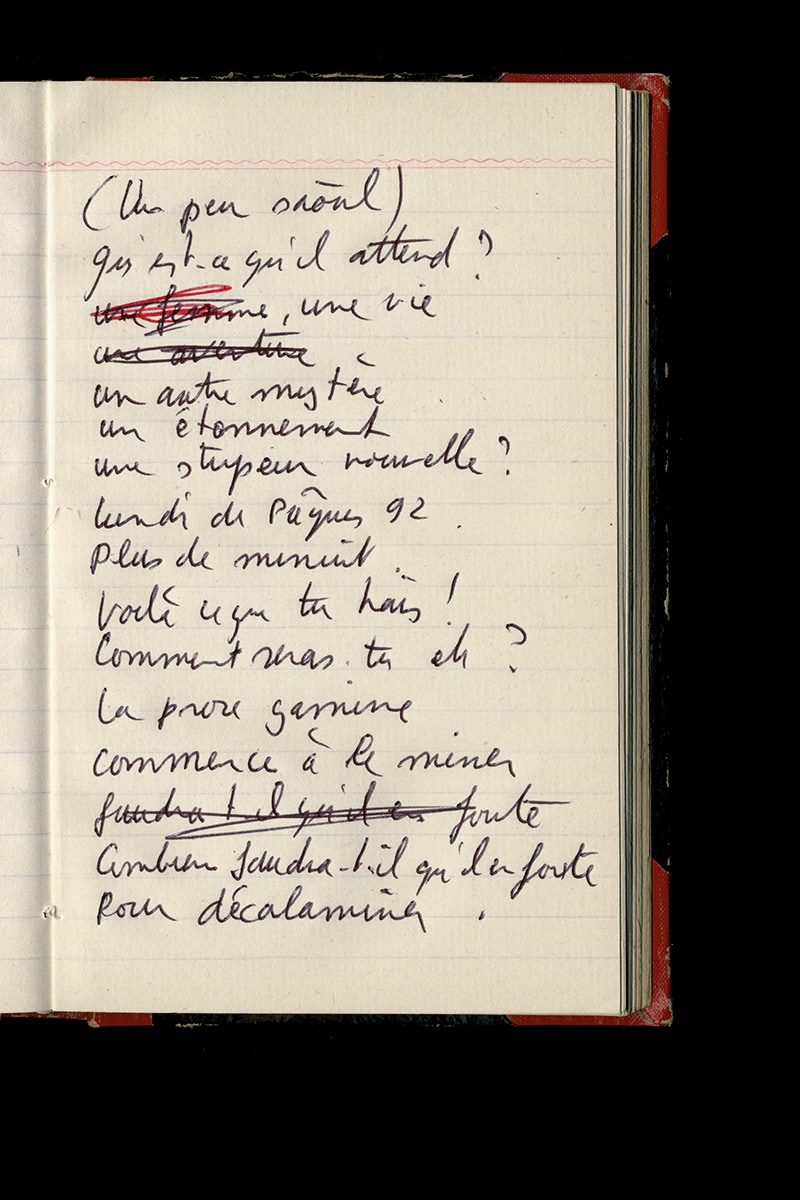 (Un peu saoûl)
qu'est-ce qu'il attend ?
une femme, une vie
une aventure
un autre mystère
un étonnement
une stupeur nouvelle ?
lundi de Pâques 92.
Plus de minuit.
Voilà ce que tu hais !
Comment seras-tu eh ?
La prose gamine
commence à le miner
faudra-t-il qu'il en foute
Combien faudra-t-il qu'il en foute
Pour décalaminer.